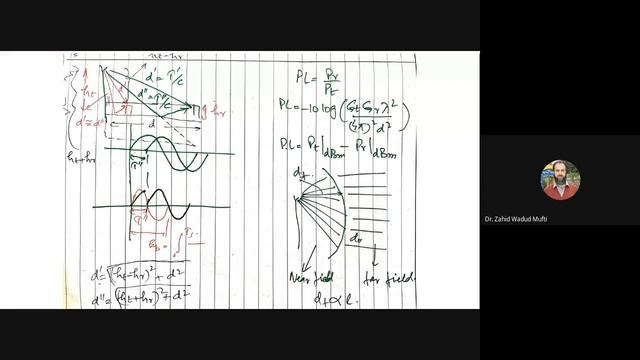 ht-hr
d' = τ'/c
d'' = τ''/c
ht
hr
d' ≅ d''
d
ht+hr
τ''
τ''
d' = √(ht-hr)² + d²
d'' = √(ht+hr)² + d²
PL = Pr/Pt
PL = -10 log (GtGrλ²/(4π)²d²)
PL = Pt|dBm - Pr|dBm
df
do
Near field
far field
df ∝ l.
Dr. Zahid Wadud Mufti